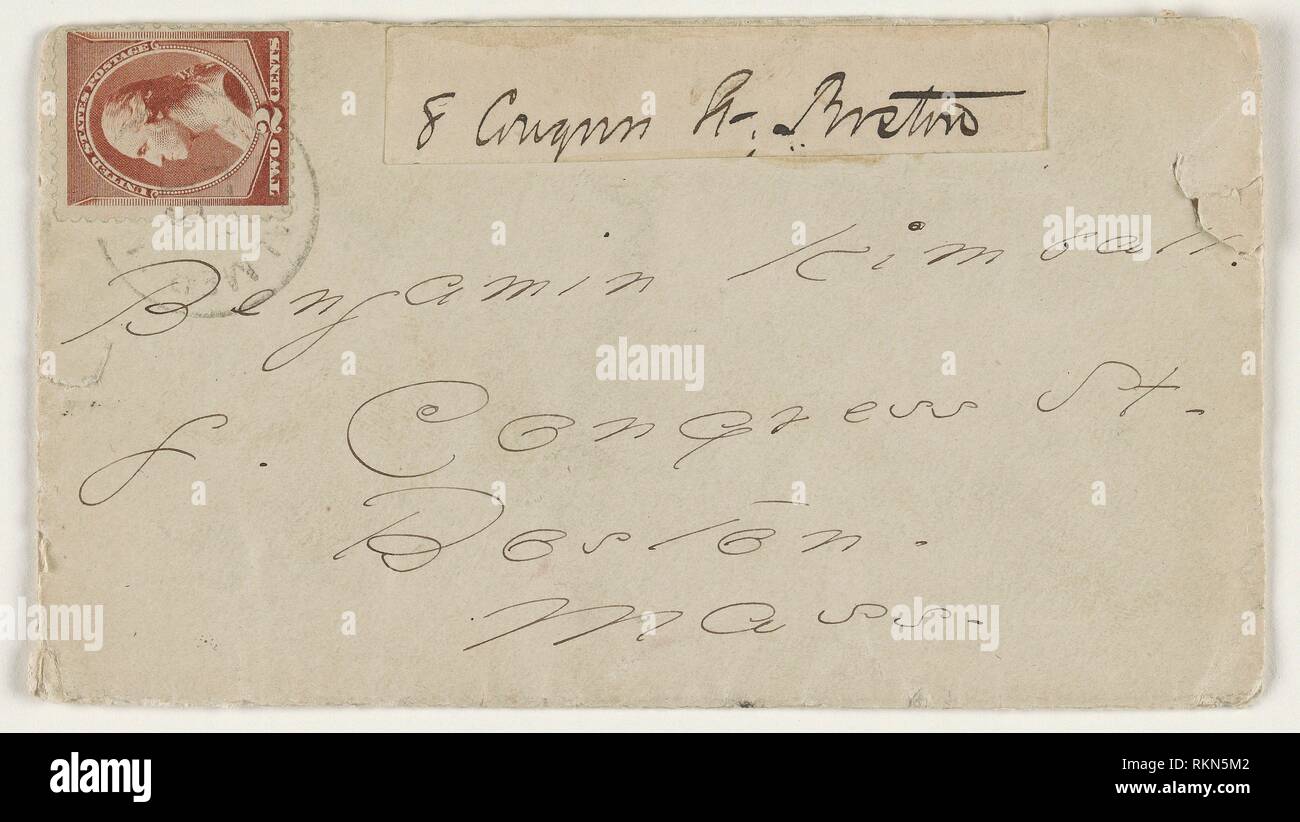 UNITED STATES POSTAGE
TWO 2 CENTS
8 Congress St, Boston
Benjamin Kimball.
8. Congress St.
Boston.
Mass.
alamy
Image ID: RKN5M2
www.alamy.com